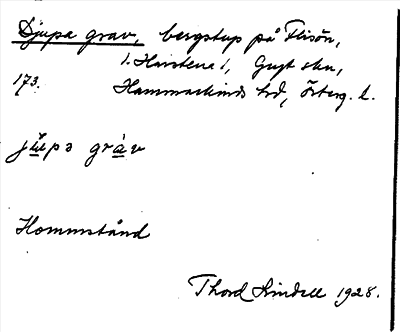 Djupa grav, bergstup på Flisön,
1. Harstena 1, Gryt skn,
173. Hammarkinds hrd, Österg. l.
jʉpa gráv
Hammstånd
Thord Lindell 1928.